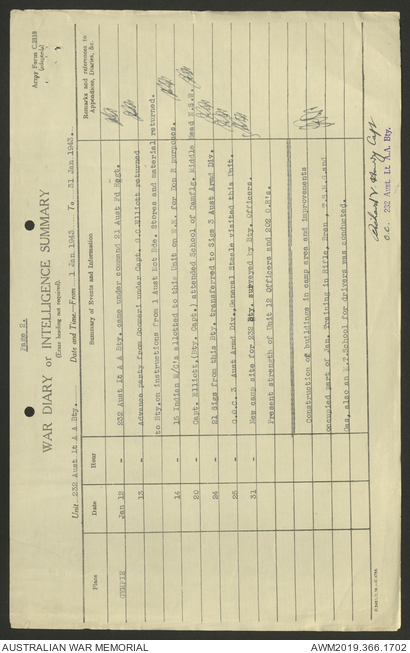 Page 2.
Army Form C.2118
(Adapted)
WAR DIARY or INTELLIGENCE SUMMARY
(Erase heading not required).
Unit 232 Aust Lt A A Bty. Date and Time:- From 1 Jan 1943 To 31 Jan 1943.
Place Date Hour Summary of Events and Information Remarks and references to Appendices, Diaries, &c.
GYMPIE Jan 12 - 232 Aust Lt A A Bty. came under command 21 Aust Fd Regt.
13 - Advance party from Goomeri under Capt. G.C Elliott returned
to Bty.on instructions from 1 Aust Mot Bde. Stores and material returned.
14 - 15 Indian M/C's allotted to this Unit on W.E. for Don R purposes.
20 - Capt. Elliott,(Bty. Capt.) attended School of Camflg. Middle Head N.S.W.
24 - 21 Sigs from this Bty. transferred to Sigs 3 Aust Armd Div.
25 - G.O.C. 3 Aust Armd Div.,General Steele visited this Unit.
31 - New camp site for 232 Bty. surveyed by Bty. Officers.
Present strength of Unit 12 Officers and 202 O.R's.
Construction of buildings in camp area and improvements
occupied part of Jan. Training in Rifle, Bren , T.S.M.G.and
Gas, also an M.T.School for drivers was conducted.
Capt
O.C. 232 Aust. Lt. A.A. Bty.
AUSTRALIAN WAR MEMORIAL
AWM2019.366.1702